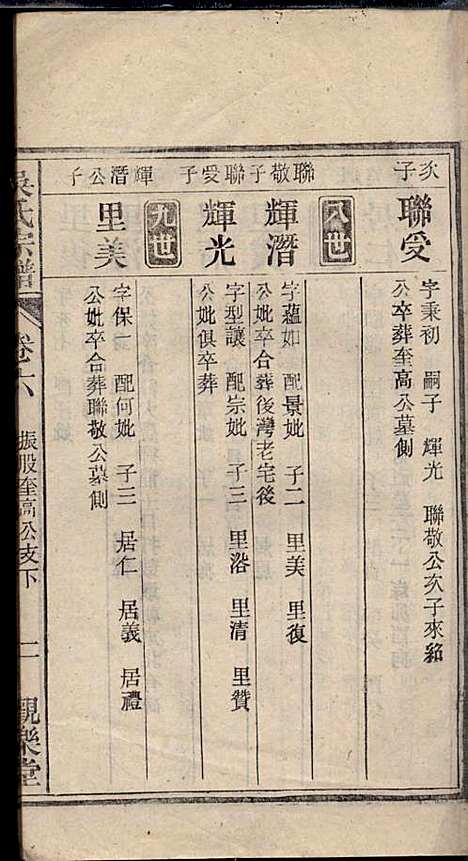 次子
聯受
字秉初 嗣子 輝光 聯敬公次子來紹
公卒葬奎高公墓側
八世
聯敬子
輝潛
字蘊如 配景妣 子二 里美 里復
公妣卒合葬後灣老宅後
聯受子
輝光
字型讓 配宗妣 子三 里浴 里清 里贊
公妣俱卒葬
九世
輝潛公子
里美
字保一 配何妣 子三 居仁 居義 居禮
公妣卒合葬聯敬公墓側
吳氏宗譜
卷十六
振股奎高公支下
二
觀樂堂